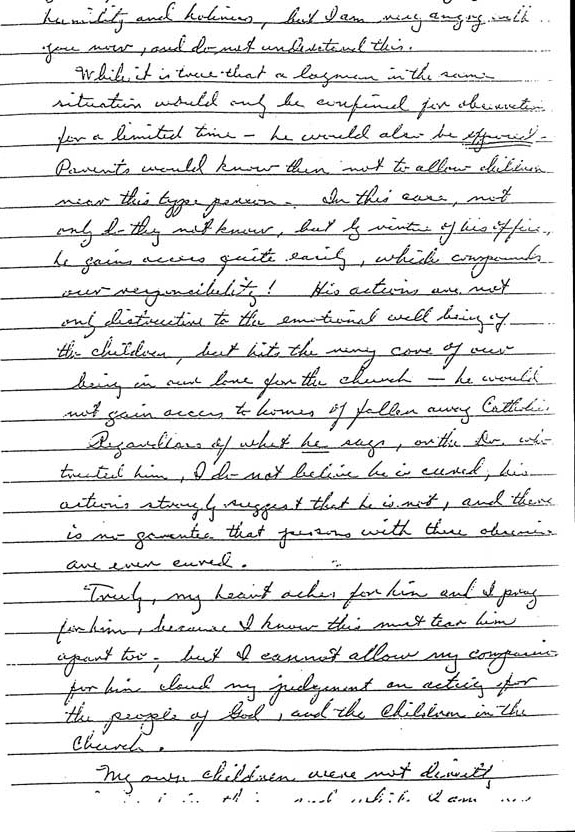 humility and holiness, but I am very angry with
you now, and do not understand this.
While it is true that a layman in the same
situation would only be confined for observation
for a limited time - he would also be exposed -
Parents would know then not to allow children
near this type person - In this case, not
only do they not know, but by virtue of his office,
he gains access quite easily, which compounds
our responcibility! His actions are not
only distructive to the emotional well being of
the children, but hits the very core of our
being in our love for the church - he would
not gain access to homes of fallen away Catholics
Regardless of what he says, or the Dr. who
treated him, I do not belive he is cured, his
actions strongly suggest that he is not, and there
is no garentee that persons with these obsessions
are ever cured.
Truly, my heart aches for him and I pray
for him, because I know this must tear him
apart too -, but I cannot allow my compassion
for him cloud my judgement on acting for
the people of God, and the Children in the
Church.
My own children were not directly
I am